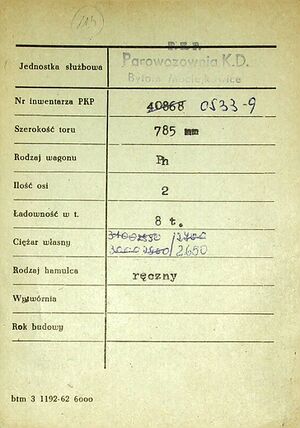 D.Z.P.
Jednostka służbowa Parowozownia K.D.
Bytom
Nr inwentarza PKP 40868 0533-9
Szerokość toru 785 mm
Rodzaj wagonu Ph
Ilość osi 2
Ładowność w t. 8 t.
Ciężar własny 2700
2650
Rodzaj hamulca ręczny
Wytwórnia
Rok budowy
btm 3 1192-62 6000